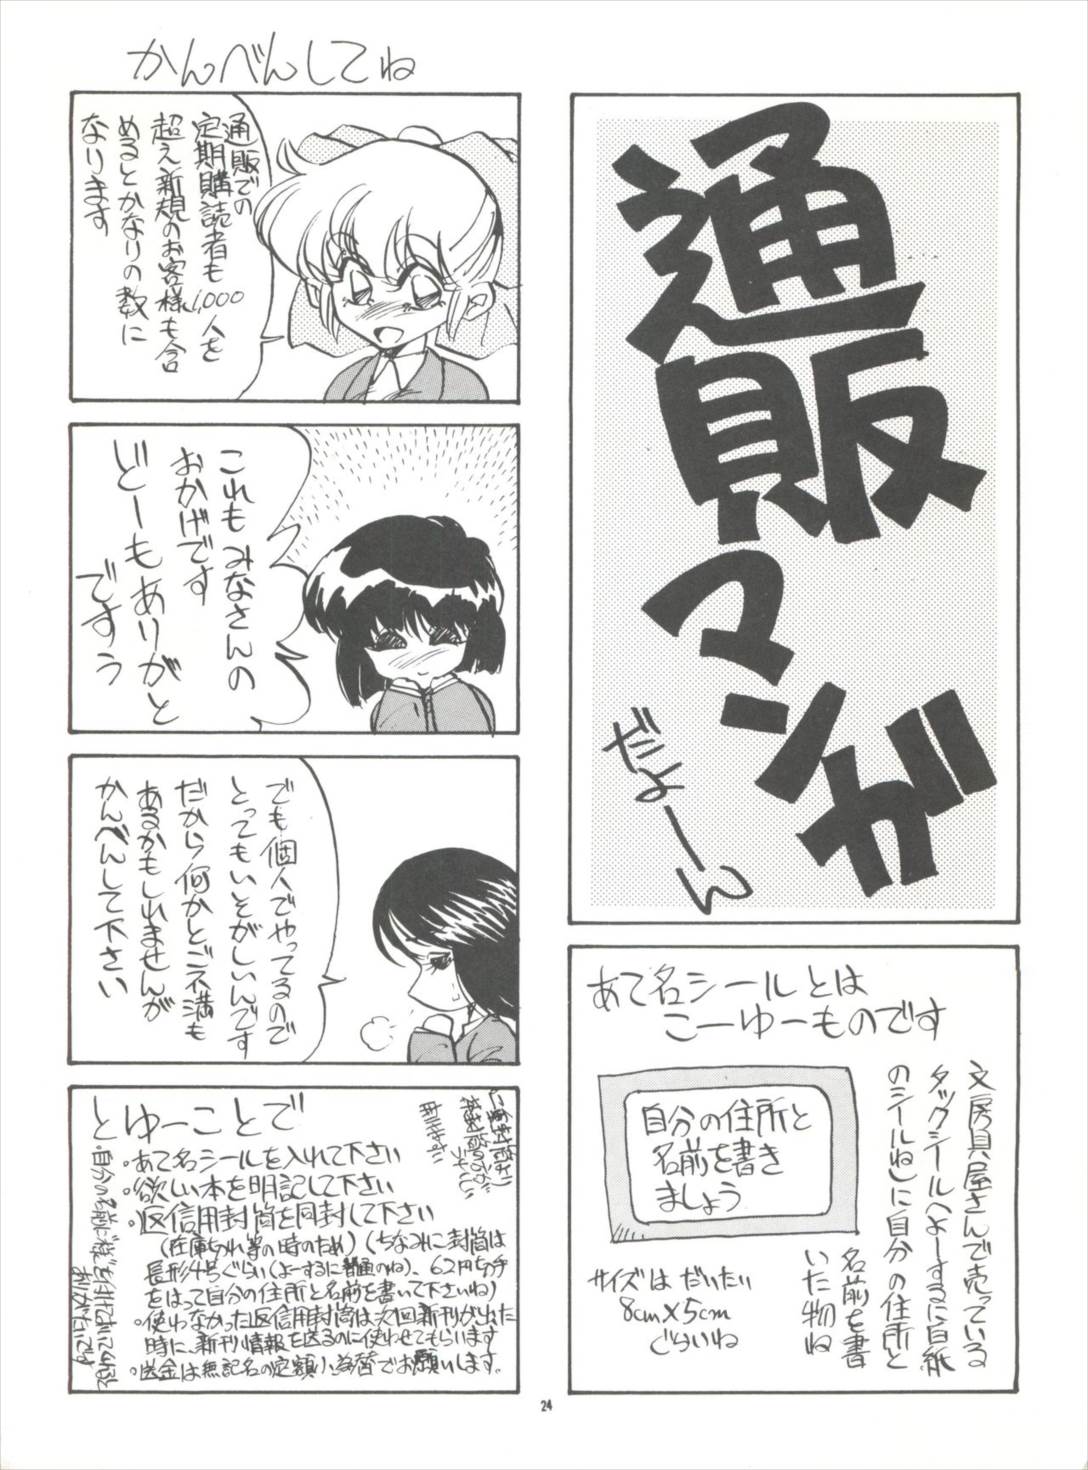 通販マンガ
だよーん
あて名シールとは
こーゆーものです
文房具屋さんで売っている
タックシール(よーするに白紙
のシールね)に自分の住所と
名前を書
いた物ね
自分の住所と
名前を書き
ましょう
サイズは だいたい
8cm×5cm
ぐらいね
かんべんしてね
通販での
定期購読者も1,000人を
超え新規のお客様も含
めるとかなりの数に
なります
これもみなさんの
おかげです
どーもありがと
ですぅ
でも個人でやってるので
とってもいそがしいんです
だから何かとご不満も
あるかもしれませんが
かんべんして下さい
とゆーことで
・あて名シールを入れて下さい
・欲しい本を明記して下さい
・返信用封筒を同封して下さい
(在庫切れ等の時のため)(ちなみに封筒は
長形4号ぐらい(よーするに普通のね)、62円切手
をはって自分の住所と名前を書いて下さいね)
・使わなかった返信用封筒は、次回新刊が出た
時に、新刊情報を送るのに使わせてもらいます
・送金は無記名の定額小為替でお願いします。
・自分の名前に
24